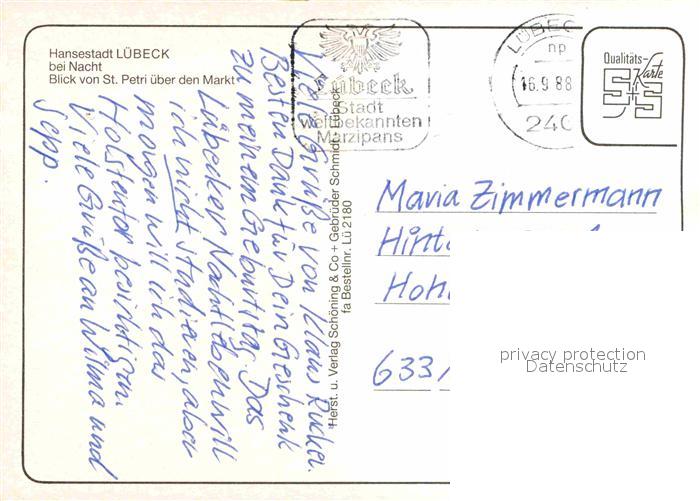 Hansestadt LÜBECK
bei Nacht
Blick von St. Petri über den Markt
Lübeck
Stadt
weltbekannten
Marzipans
LÜBEC
np
16.9.88
240
Qualitäts-
Karte
S+S
Viele Grüße von Klaus Ruckei.
Besten Dank für Dein Geschenk
zu meinem Geburtstag. Das
Lübecker Nachtleben will
ich nicht studieren, aber
morgen will ich das
Holstentor besichtigen.
Viele Grüße an Wilma und
Sepp.
Herst. u. Verlag Schöning & Co + Gebrüder Schmidt, Lübeck
fa Bestellnr. Lü 2180
Maria Zimmermann
Hint
Hoh
633
privacy protection
Datenschutz